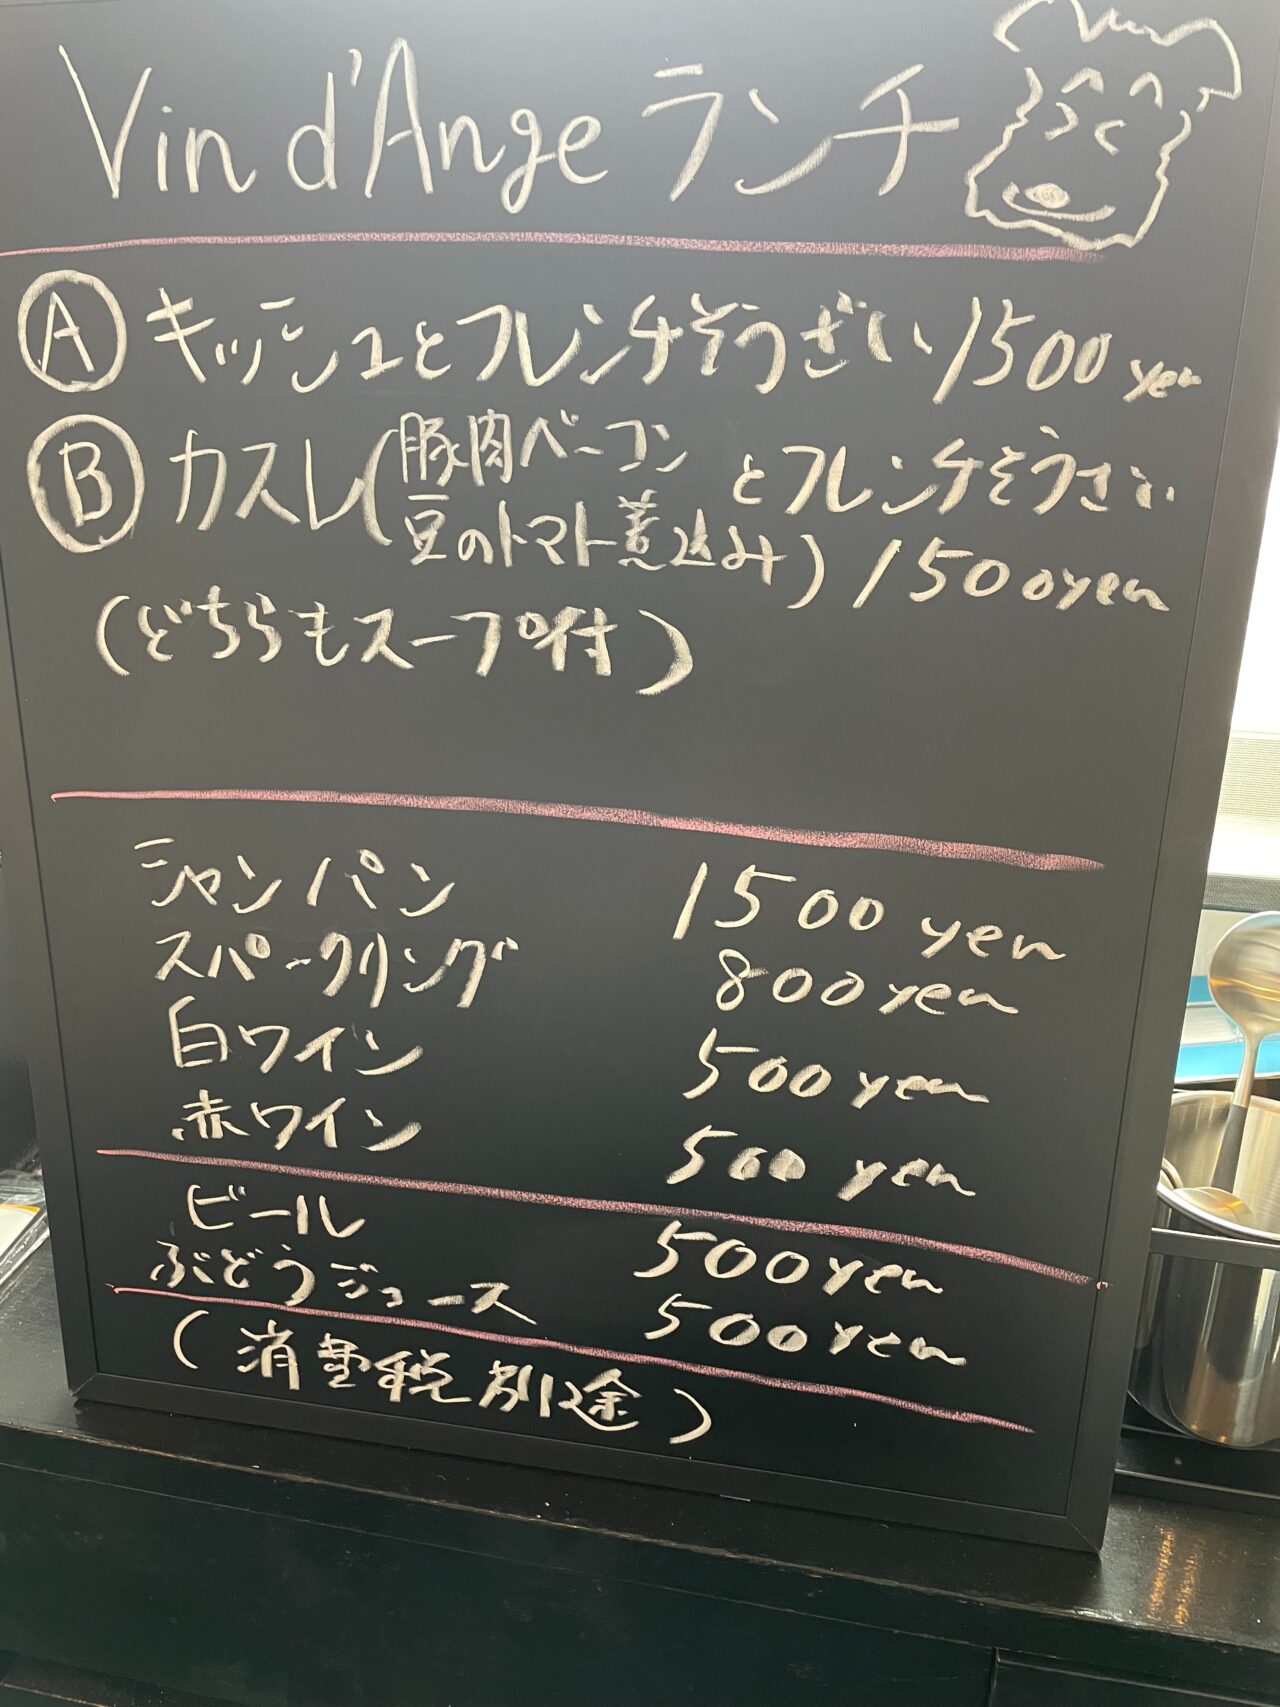 Vin d'Ange ランチ
Ⓐ キッシュとフレンチそうざい 1500 yen
Ⓑ カスレ(豚肉ベーコン
豆のトマト煮込み) とフレンチそうざい
1500yen
(どちらもスープ付)
シャンパン 1500 yen
スパークリング 800yen
白ワイン 500 yen
赤ワイン 500 yen
ビール 500yen
ぶどうジュース 500yen
(消費税別途)